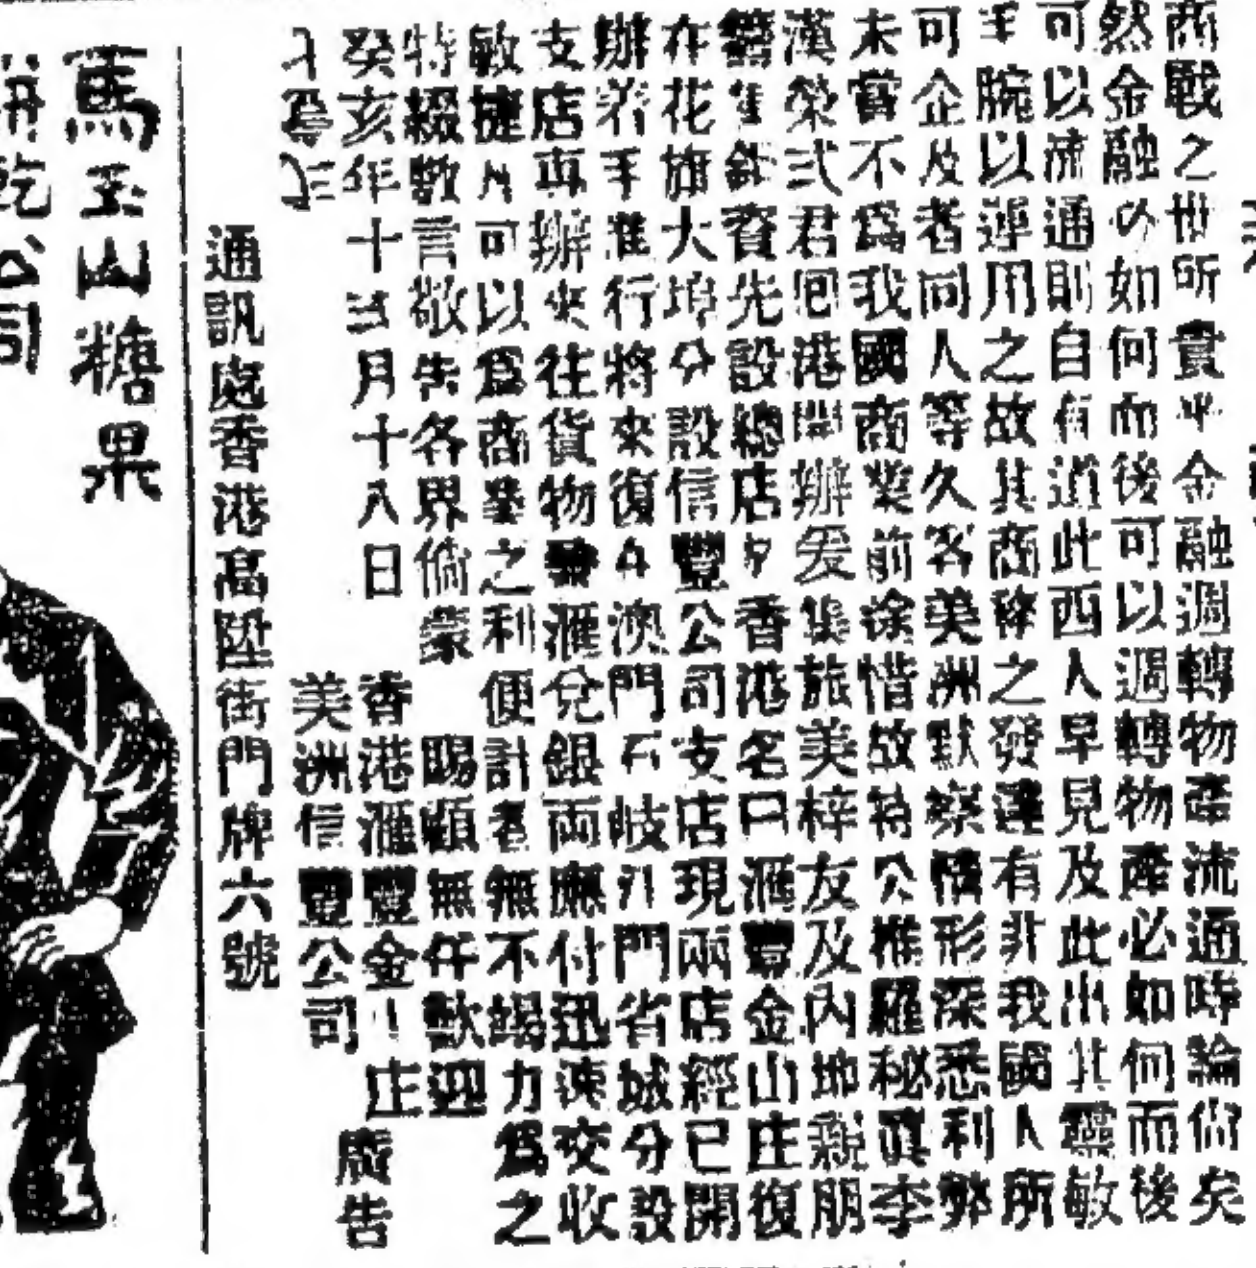 商戰之世所貴乎金融週轉物產流通時論尙矣
然金融必如何而後可以週轉物產必如何而後
可以流通則自有道此西人早見及此出其靈敏
手腕以運用之故其商之發達有非我國人所
可企及者同人等久客美洲默察情形深悉利弊
未嘗不爲我國商業前途惜故特公推羅秘眞李
漢榮弍君囘港開辦爰集旅美梓友及內地親朋
籌集鉅資先設總店於香港名曰滙豐金山庄復
在花旗大埠分設信豐公司支店現兩店經已開
辦着手進行將來復在澳門石岐江門省城分設
支店專辦來往貨物兼滙兌銀兩應付迅速交收
敏捷凡可以爲商業之利便計者無不竭力爲之
特綴數言敬告各界倘蒙 賜顧無任歡迎
癸亥年十弍月十八日
香港滙豐金山庄
美洲信豐公司
廣告
通訊處香港高陞街門牌六號
馬玉山糖果
餅乾公司